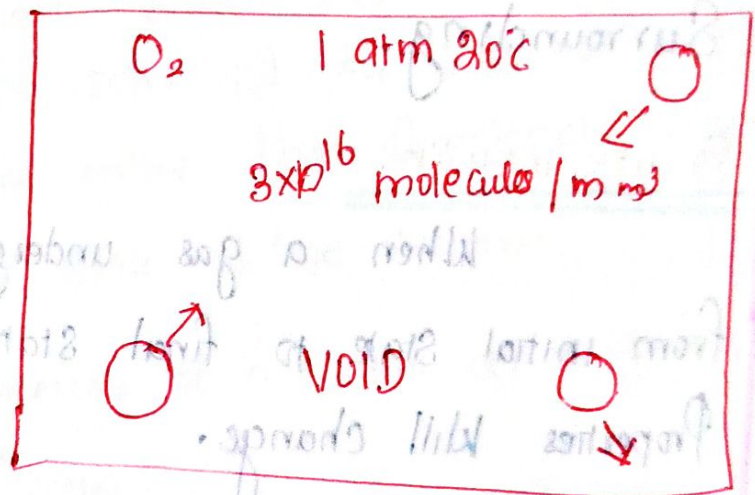 O₂ 1 atm 20°C
3x10¹⁶ molecules / m m³
VOID